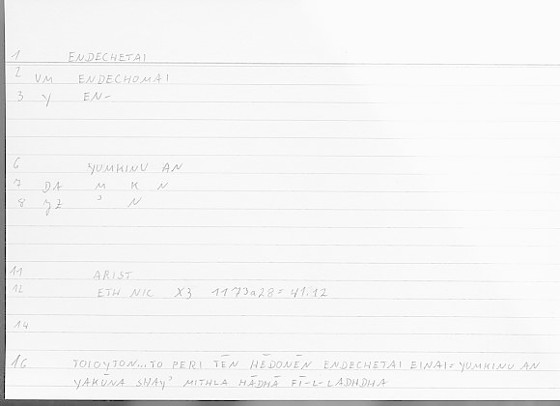 1 ENDECHETAI
2 VM ENDECHOMAI
3 Y EN-
6 YUMKINU AN
7 DA M K N
8 YZ ʾ N
11 ARIST
12 ETH NIC X3 1173a28 = 41:12
14
16 TOIOYTON...TO PERI TĒN HĒDONĒN ENDECHETAI EINAI = YUMKINU AN
YAKŪNA SHAYʾ MITHLA HĀDHĀ FĪ-L-LADHDHA